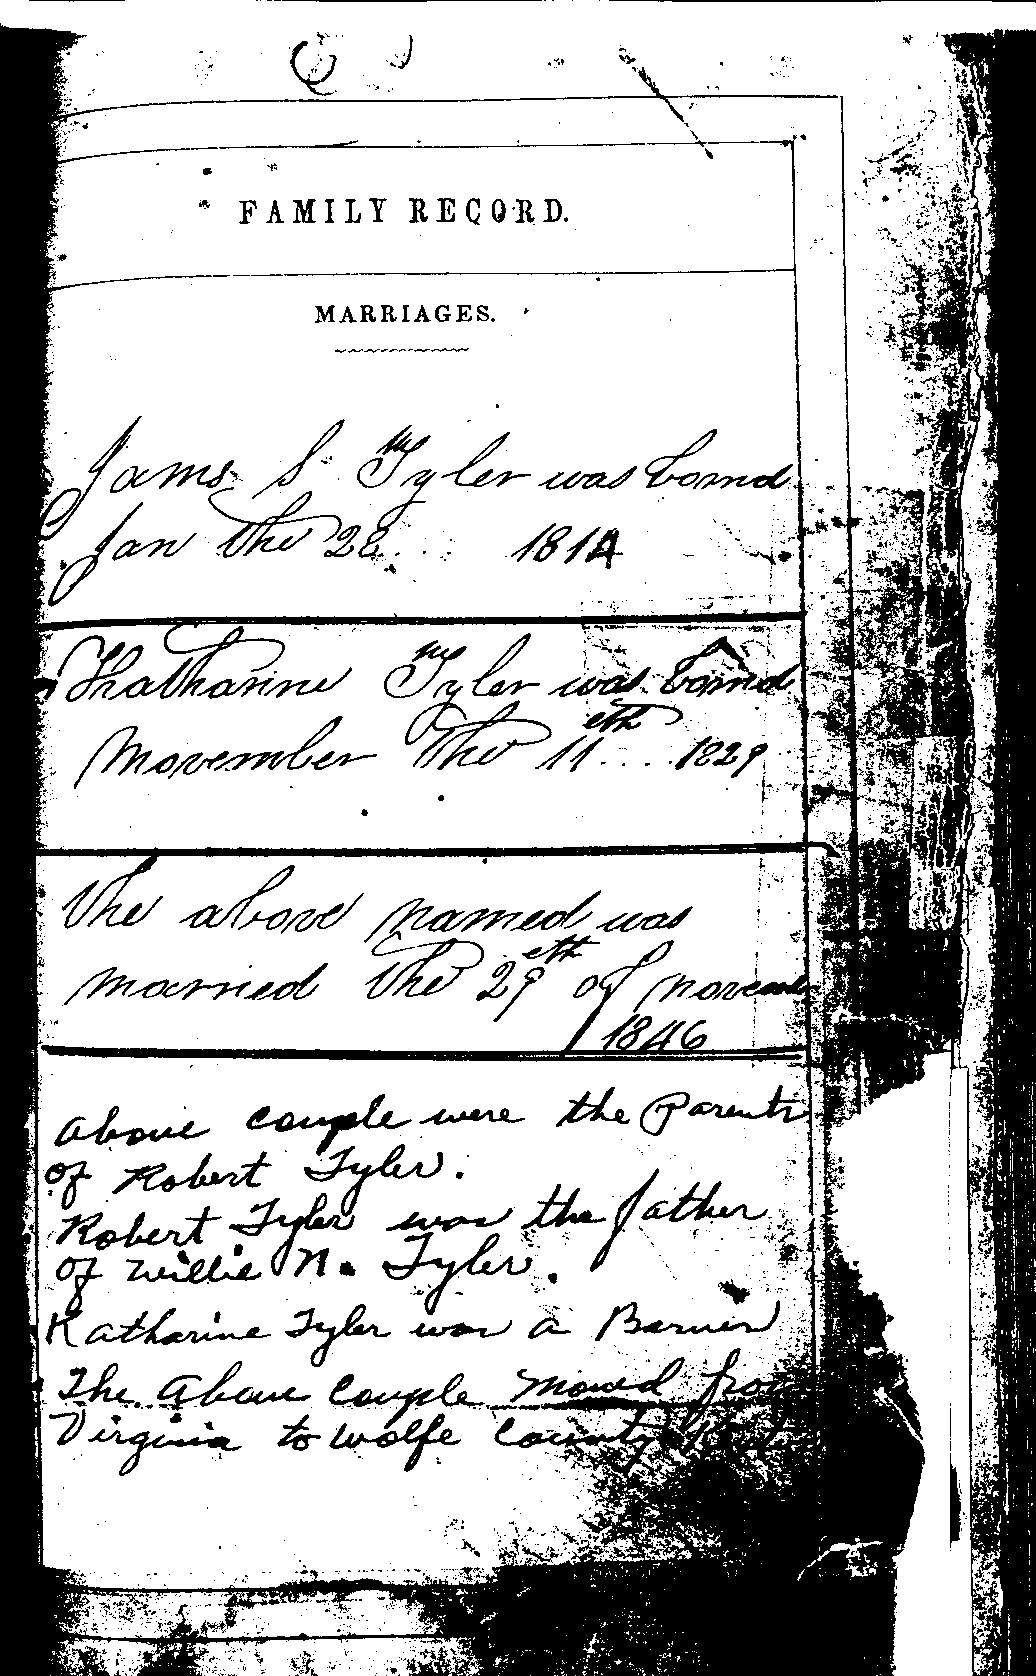 FAMILY RECORD.
MARRIAGES.
James S Tyler was bornd
Jan the 28 1814
Khatharine Tyler was bornd
November the 11eth 1829
the above named was
married the 29eth of novem
1846
Above couple were the Parents
of Robert Tyler.
Robert Tyler was the father
of Willie N. Tyler.
Katharine Tyler was a
The Above Couple moved from
Virginia to Wolfe County